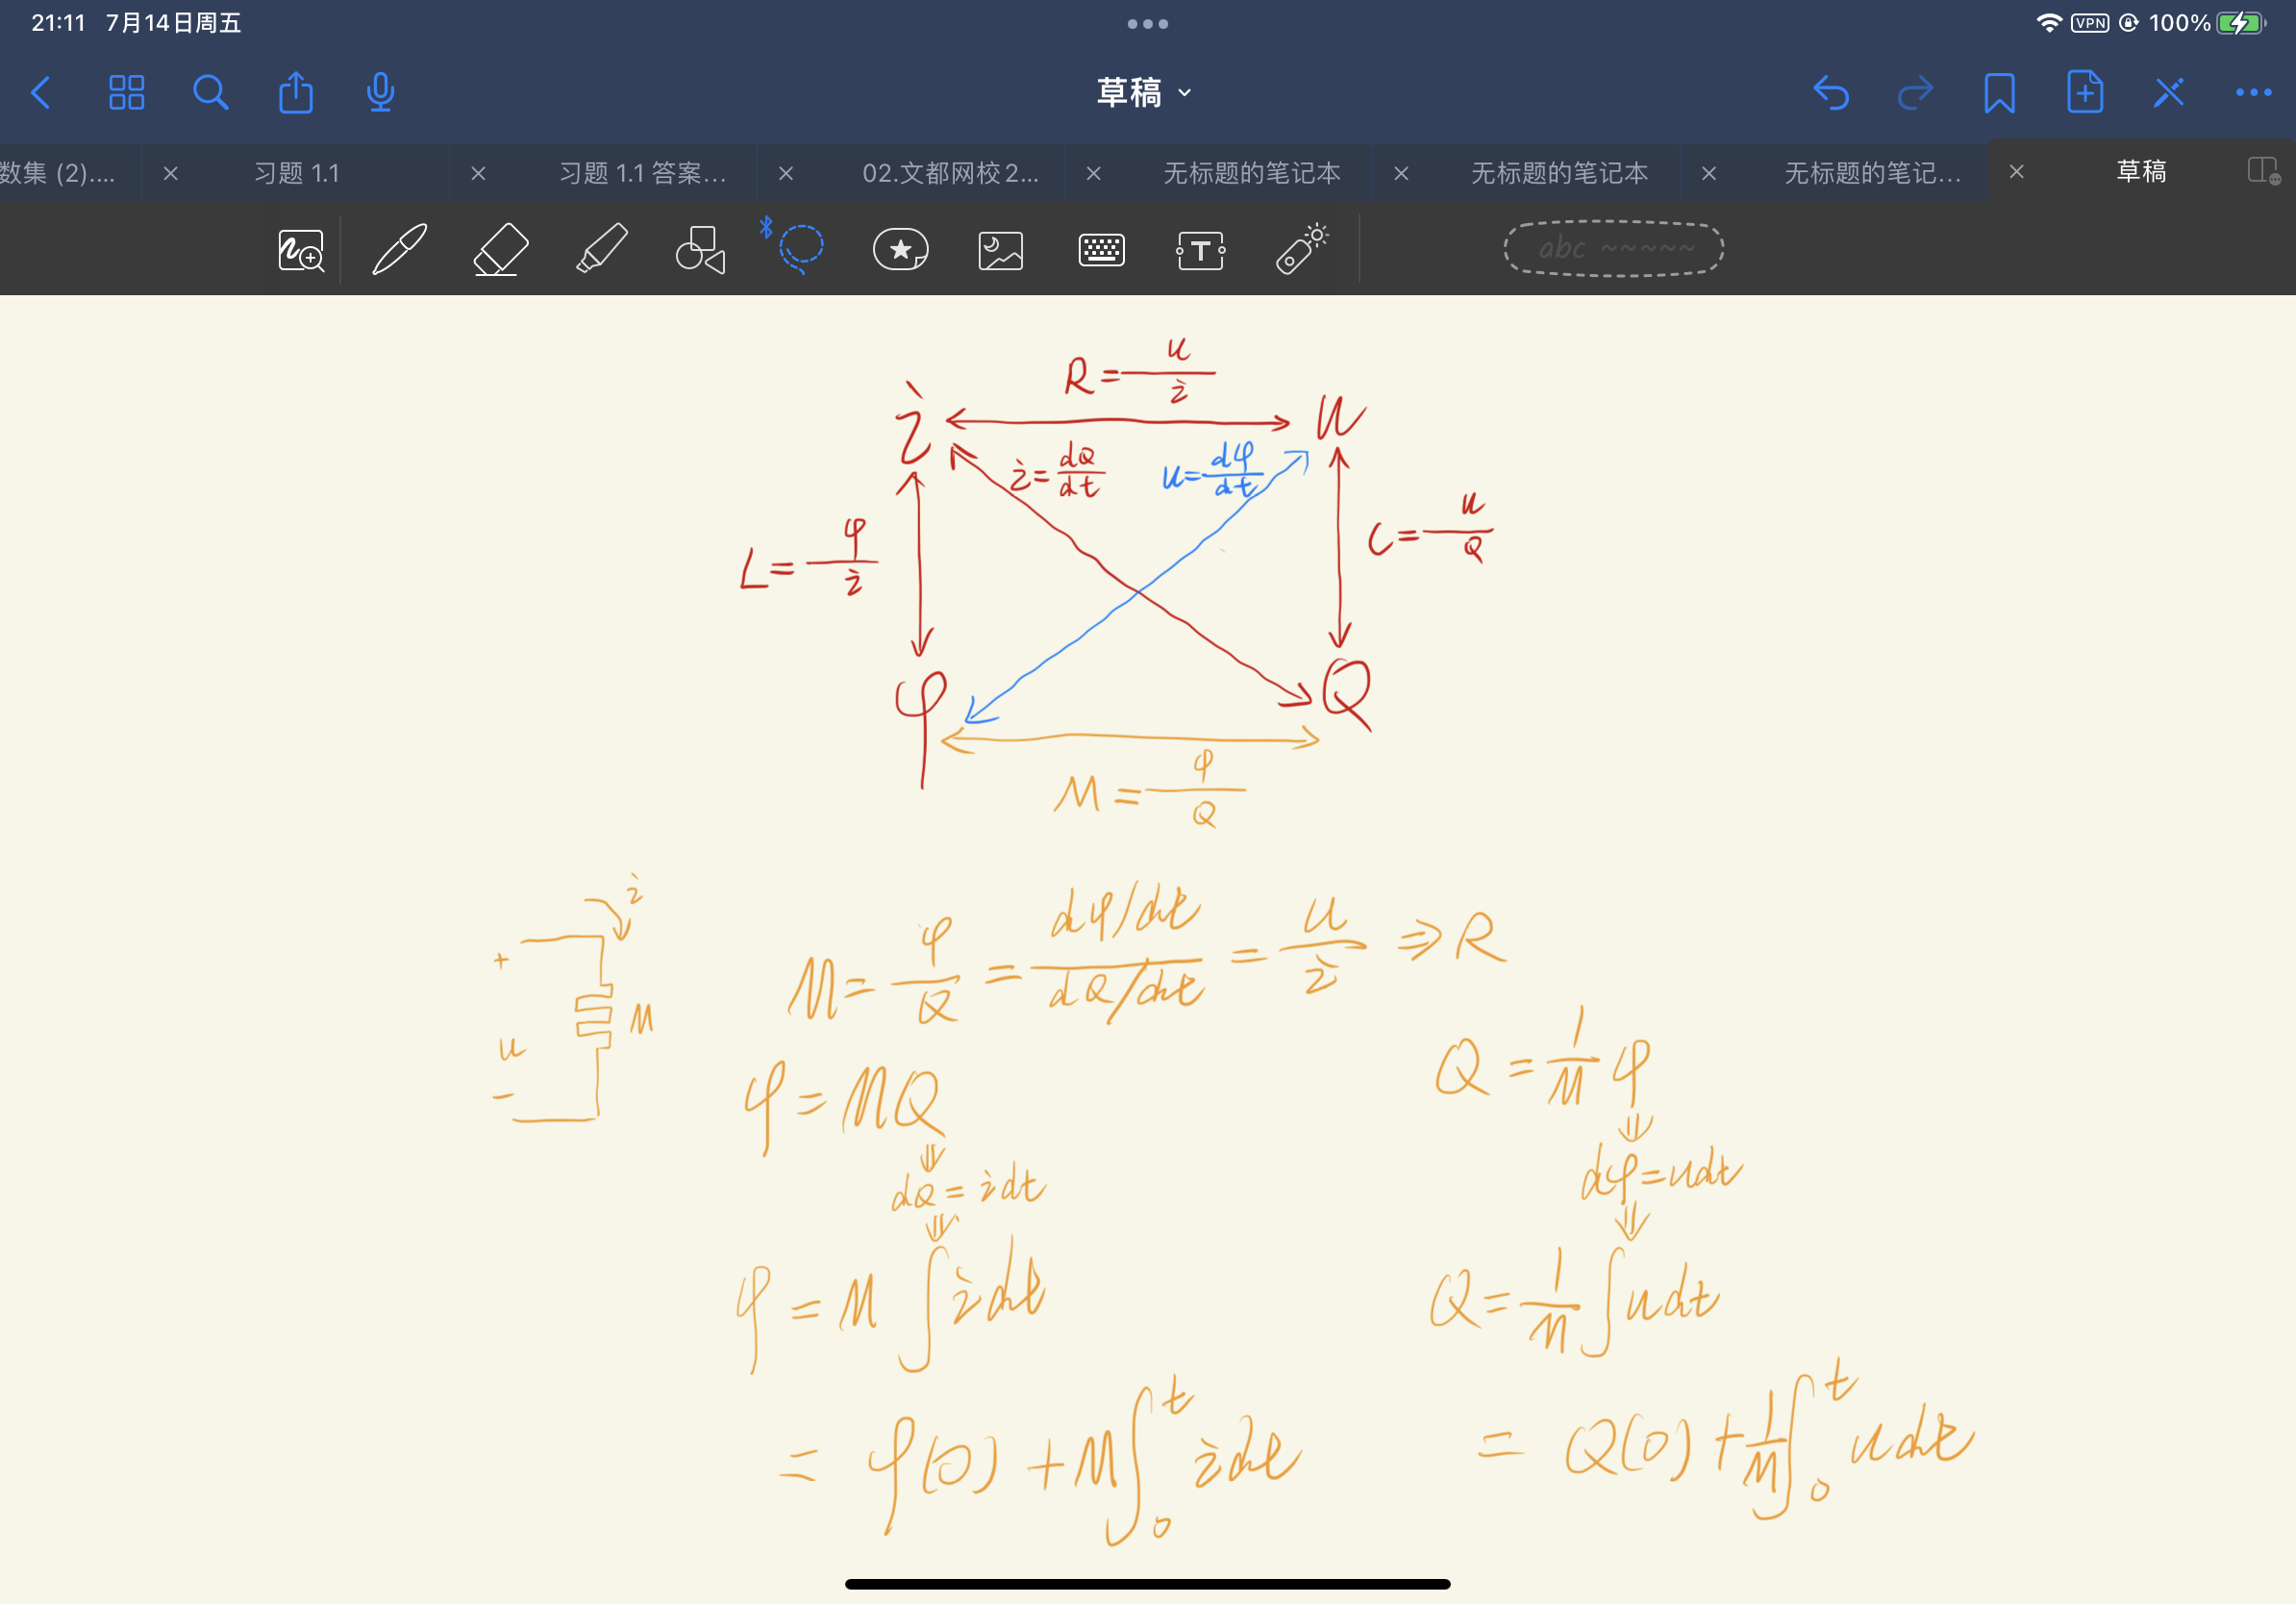 21:11 7月14日周五
VPN 100%
草稿
数集 (2)....
习题 1.1
习题 1.1 答案...
02.文都网校2...
无标题的笔记本
无标题的笔记本
无标题的笔记...
草稿
T
abc ~~~~~
R = u/i
i
u
i = dQ/dt
u = dφ/dt
L = φ/i
C = u/Q
φ
Q
M = φ/Q
i
+
M
u
−
M = φ/Q = (dφ/dt)/(dQ/dt) = u/i ⇒ R
φ = MQ
Q = 1/M φ
⇓
⇓
dQ = idt
dφ = udt
⇓
⇓
φ = M ∫ idt
Q = 1/M ∫ udt
= φ(0) + M ∫₀ᵗ idt
= Q(0) + 1/M ∫₀ᵗ udt